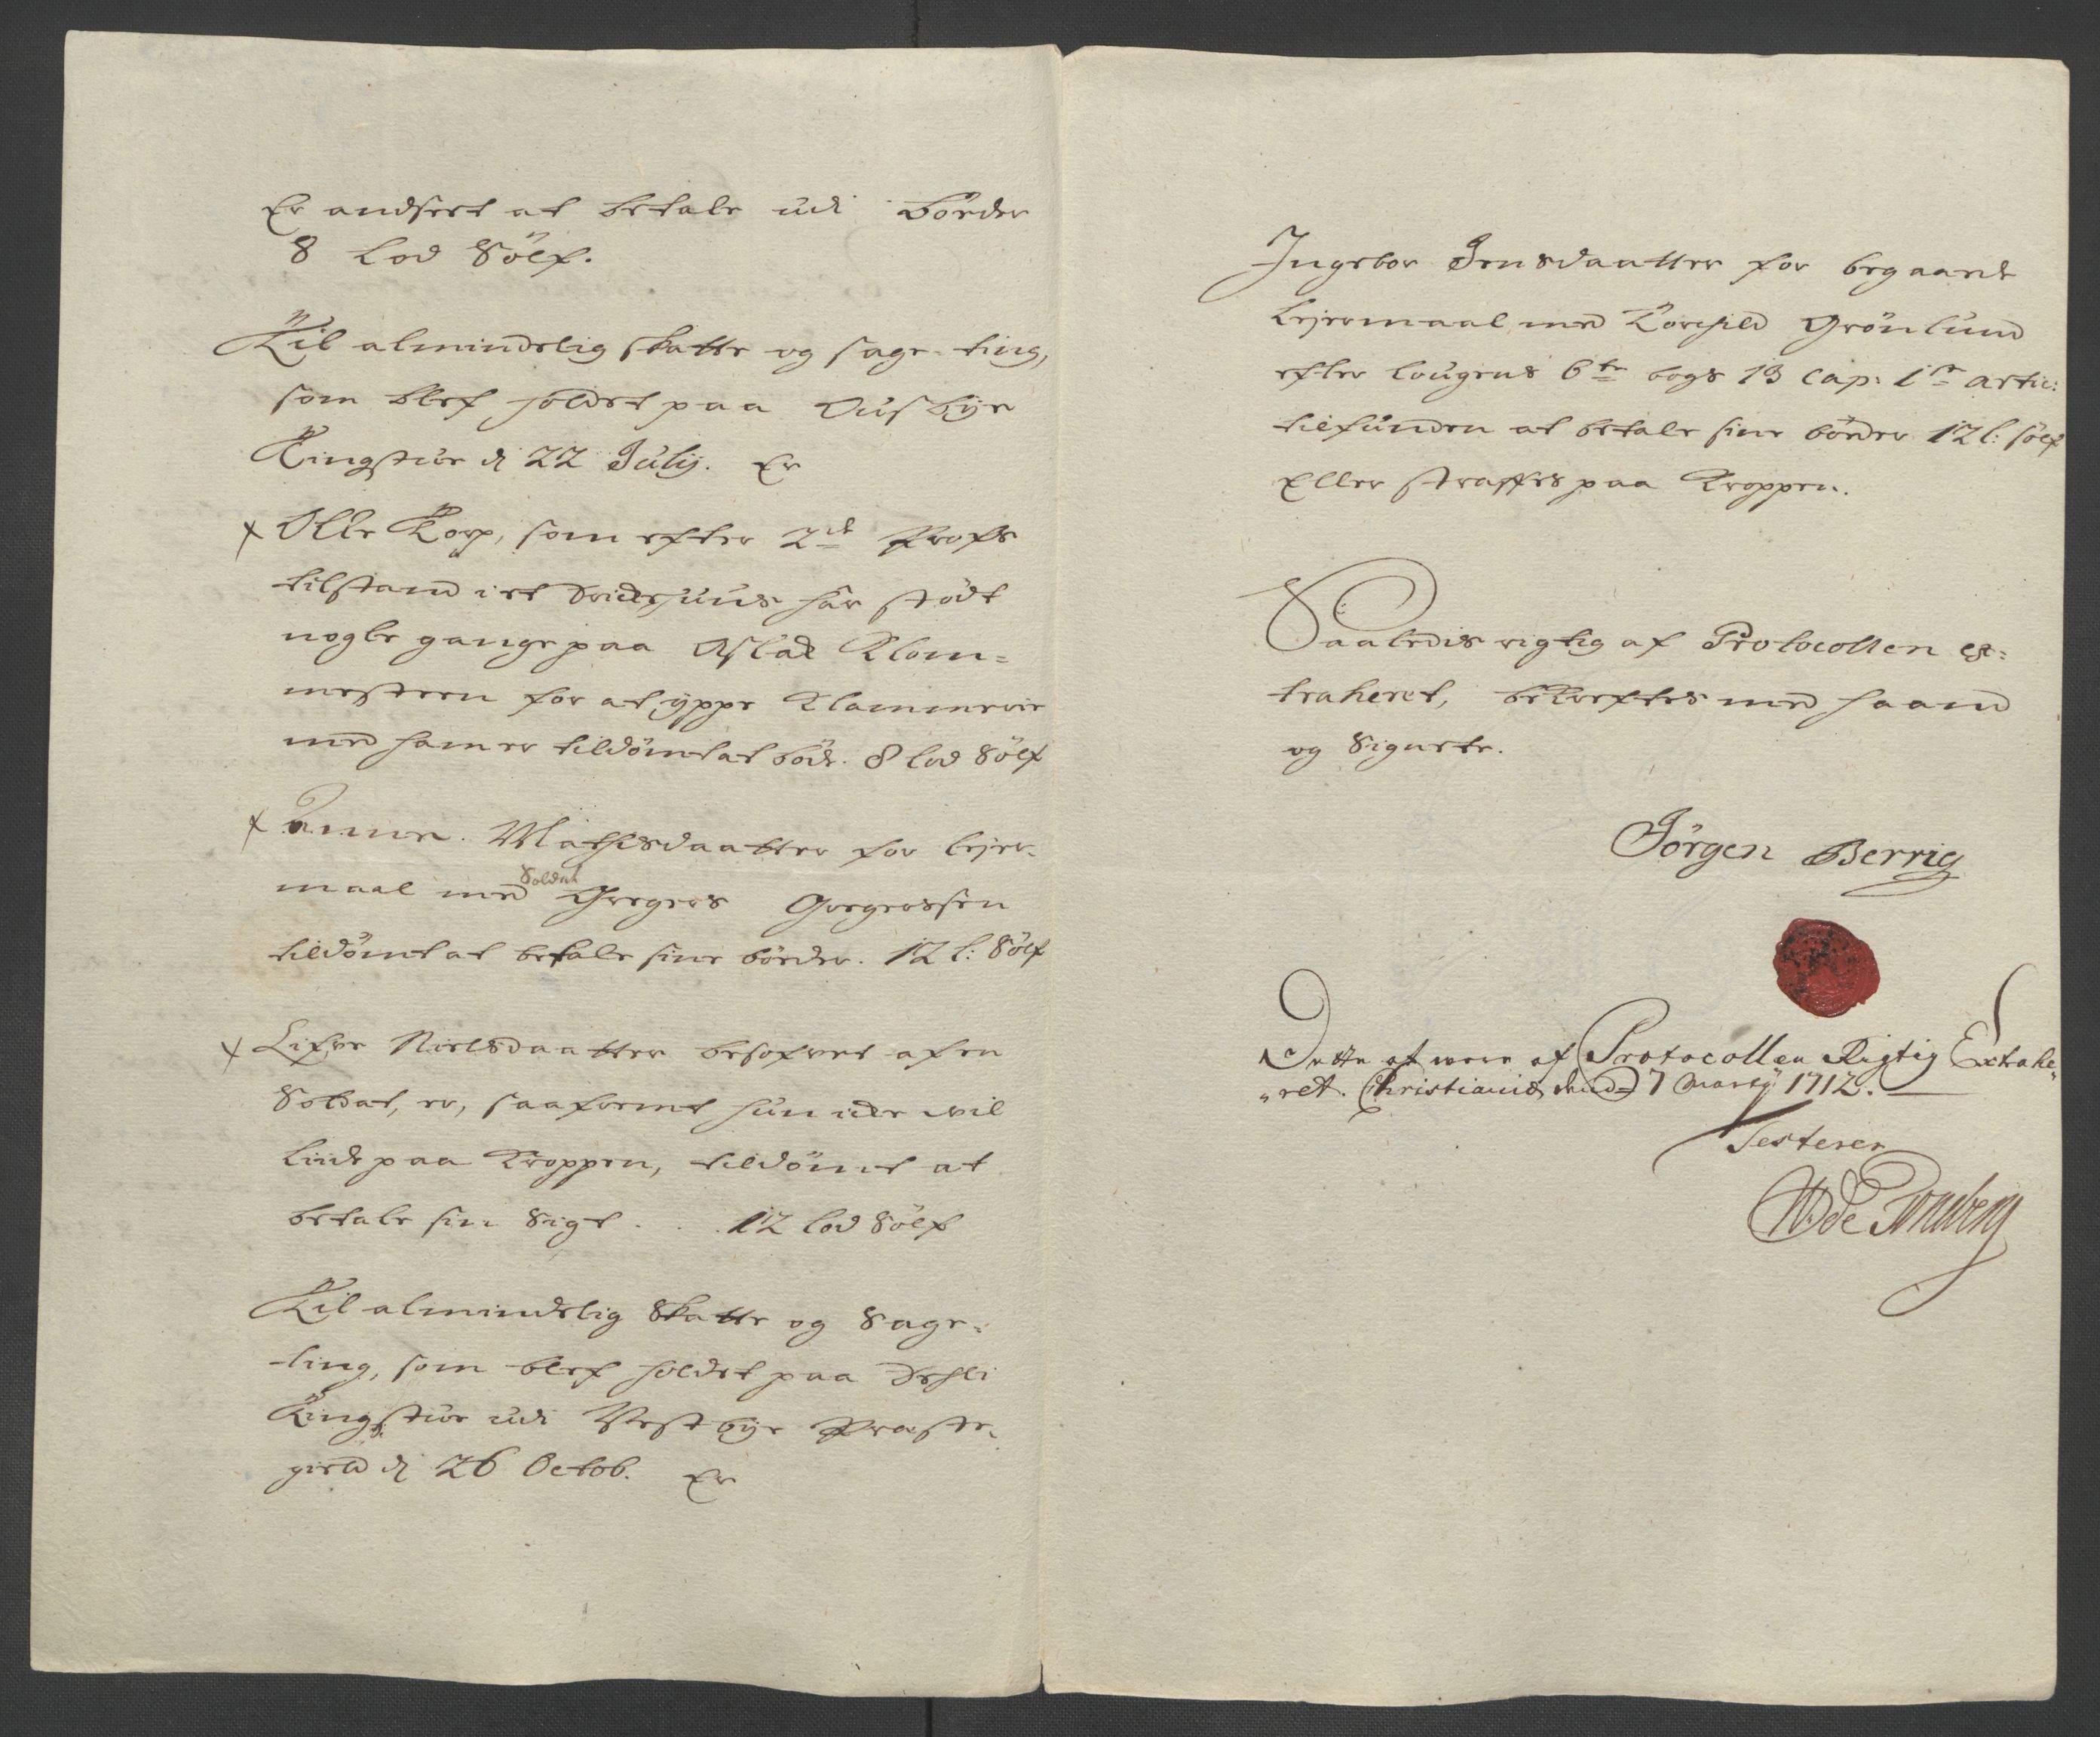 Er andseet at betale udi böeder
8 Lod Sölf.
Til almindelig skatte og sage-ting,
som blef holdet paa Huusbye
Tingstue d 22 July. Er
Olle Torp, som efter 2de Profs
tilstand i et Drickehuus har stödt
nogle gange paa Aslak Klom=
mesteen for at yppe Klammerie
med ham er tildömt at böde. 8 lod Sölf
Anne. Mathisdaatter for lejer-
maal med Soldat Gregers Gregerssen
tildömt at betale sine böeder. 12 l: Sölf
Lisbe Nielsdaatter besofvet af en
Soldat, er, saafremt hun icke wil
liide paa Kroppen, tildömt at
betale sin Sigt . . . 12 lod Sölf
Til almindelig Skatte og Sage-
ting, som blef holdet paa Dehli
Tingstue udi Westbye Præste-
gield d 26 Octob. Er
Ingebor Jensdaatter for begaaende
Lejermaal med Torchild Grönlund
efter lougens 6te bogs 13 Cap: 1ste artic:
tilfunden at betale sine böeder 12 l: sölf
Eller straffes paa Kroppen.
Saaledis rigtig af Protocollen ex=
traheret, bekreftes med haand
og Signete.
Jörgen Berrig
Dette at were af Protocollen Rigtig Extrahe„
„ret. Christiania dend 7 Marty 1712.
Testerer